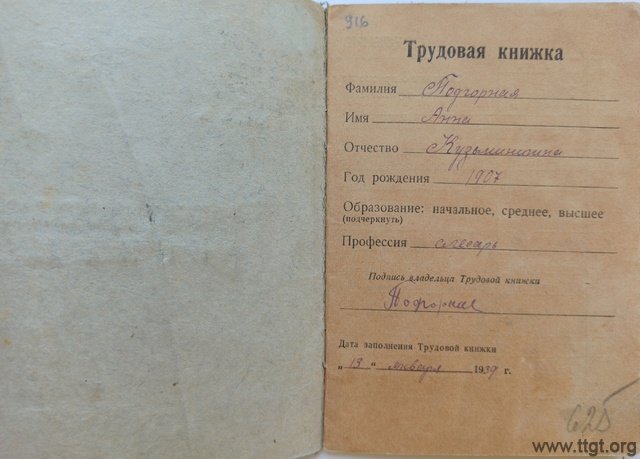 916
Трудовая книжка
Фамилия Подгорная
Имя Анна
Отчество Кузьминична
Год рождения 1907
Образование: начальное, среднее, высшее
(подчеркнуть)
Профессия слесарь
Подпись владельца Трудовой книжки
Дата заполнения Трудовой книжки
„19“ января 1939 г.
625
www.ttgt.org